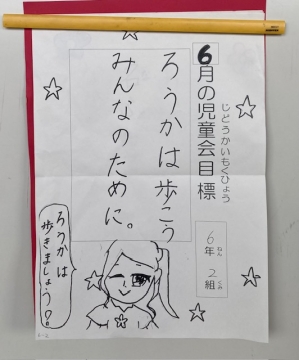 6月の児童会目標
じどうかいもくひょう
6年2組
ねん くみ
ろうかは歩こう
みんなのために。
ろうかは
歩きましょう!。